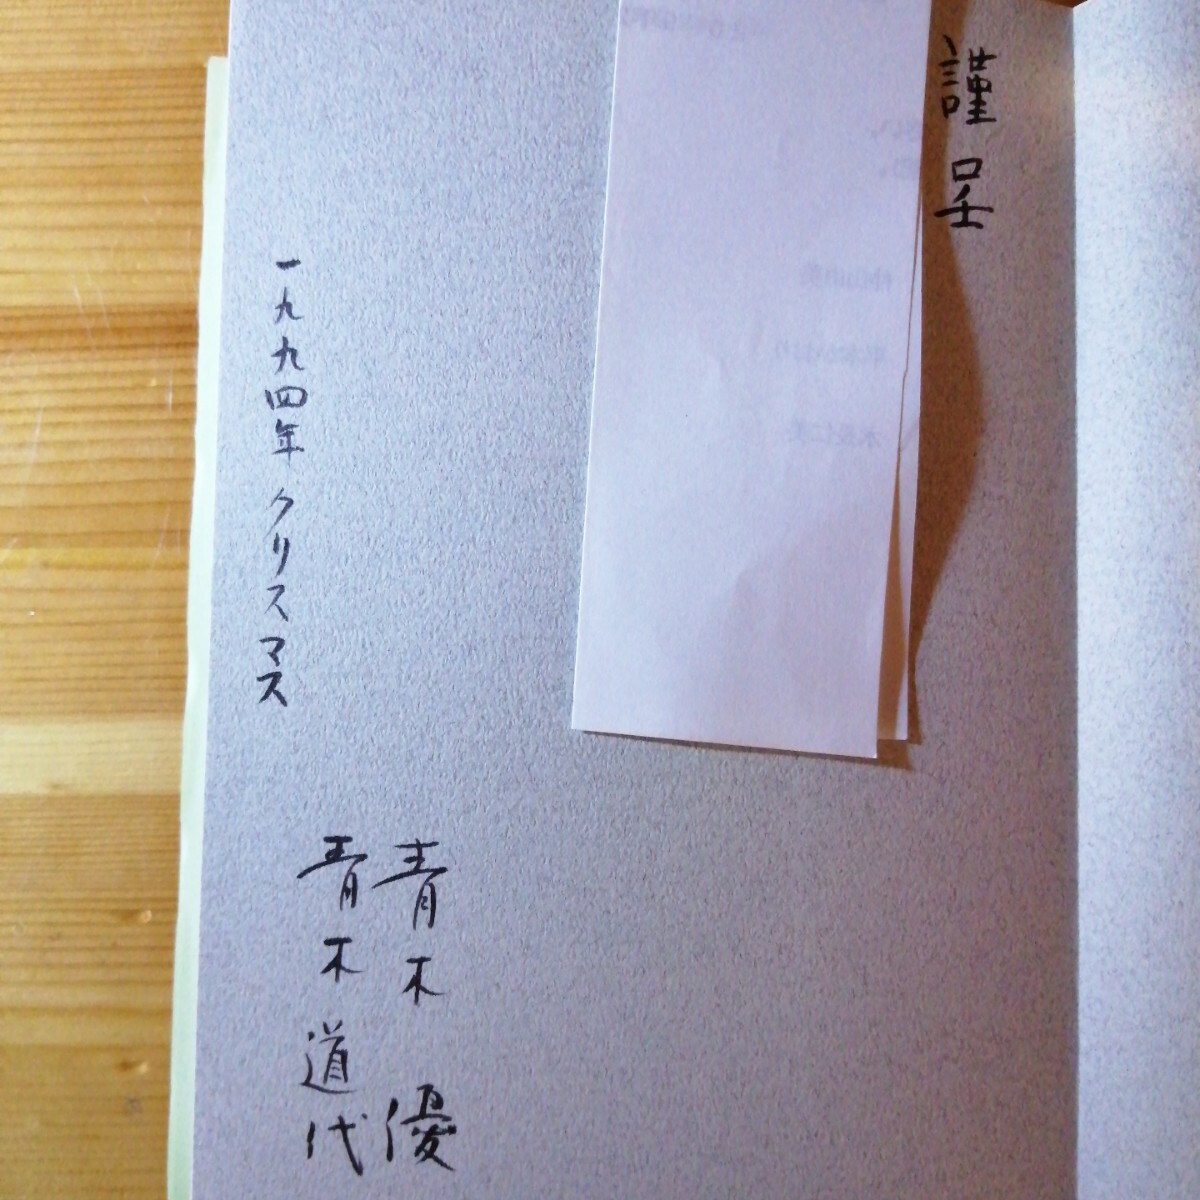 謹呈
一九九四年 クリスマス
青木 優
青木 道代